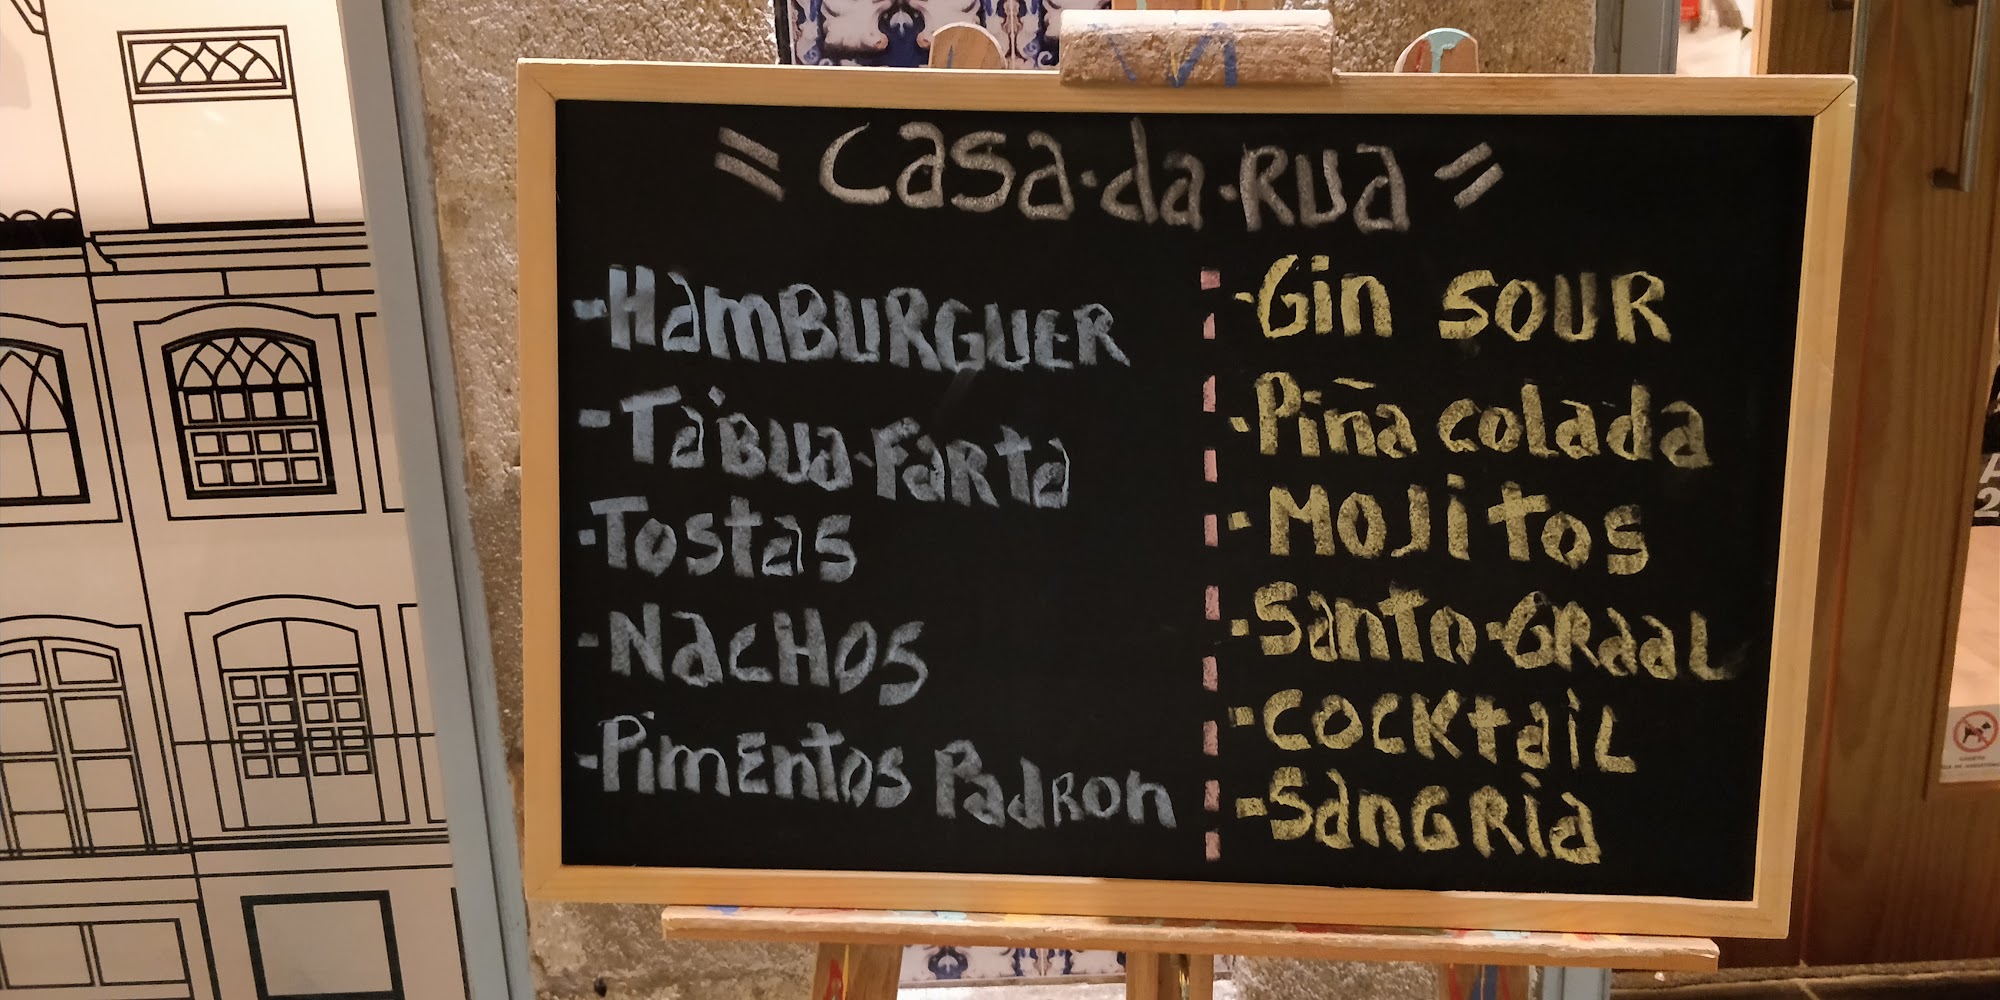 = Casa·da·Rua =
-HamBURGUER
-Tábua-Farta
-Tostas
-NacHos
-Pimentos Padron
-Gin SOUR
-Piña colada
-Mojitos
-Santo-GRaal
-COCKtail
-SanGRia